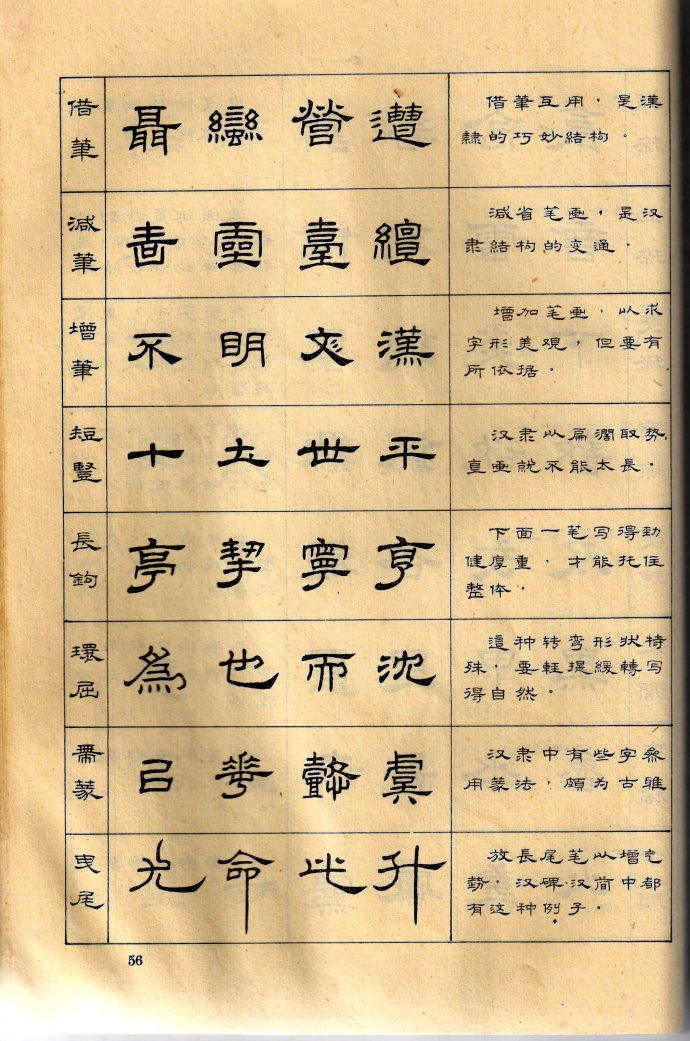 借筆
聶 蠻 營 遭
借筆互用，是漢
隸的巧妙結构。
減筆
靈 臺 纏
減省笔画，是汉
隶結构的变通．
增筆
不 明 漢
增加笔画，以求
字形美观，但要有
所依据。
短豎
十 土 世 平
汉隶以扁濶取势，
直画就不能太長．
長鉤
亭 挈 寧 亨
下面一笔写得劲
健厚重．才能托住
整体．
環屈
為 也 而 沈
這种转弯形状特
殊，要輕提緩轉写
得自然。
帶篆
已 華 懿 虞
汉隶中有些字参
用篆法，頗为古雅
曳尾
光 命 此 升
放長尾笔以增气
势．汉碑汉简中都
有这种例子。
56